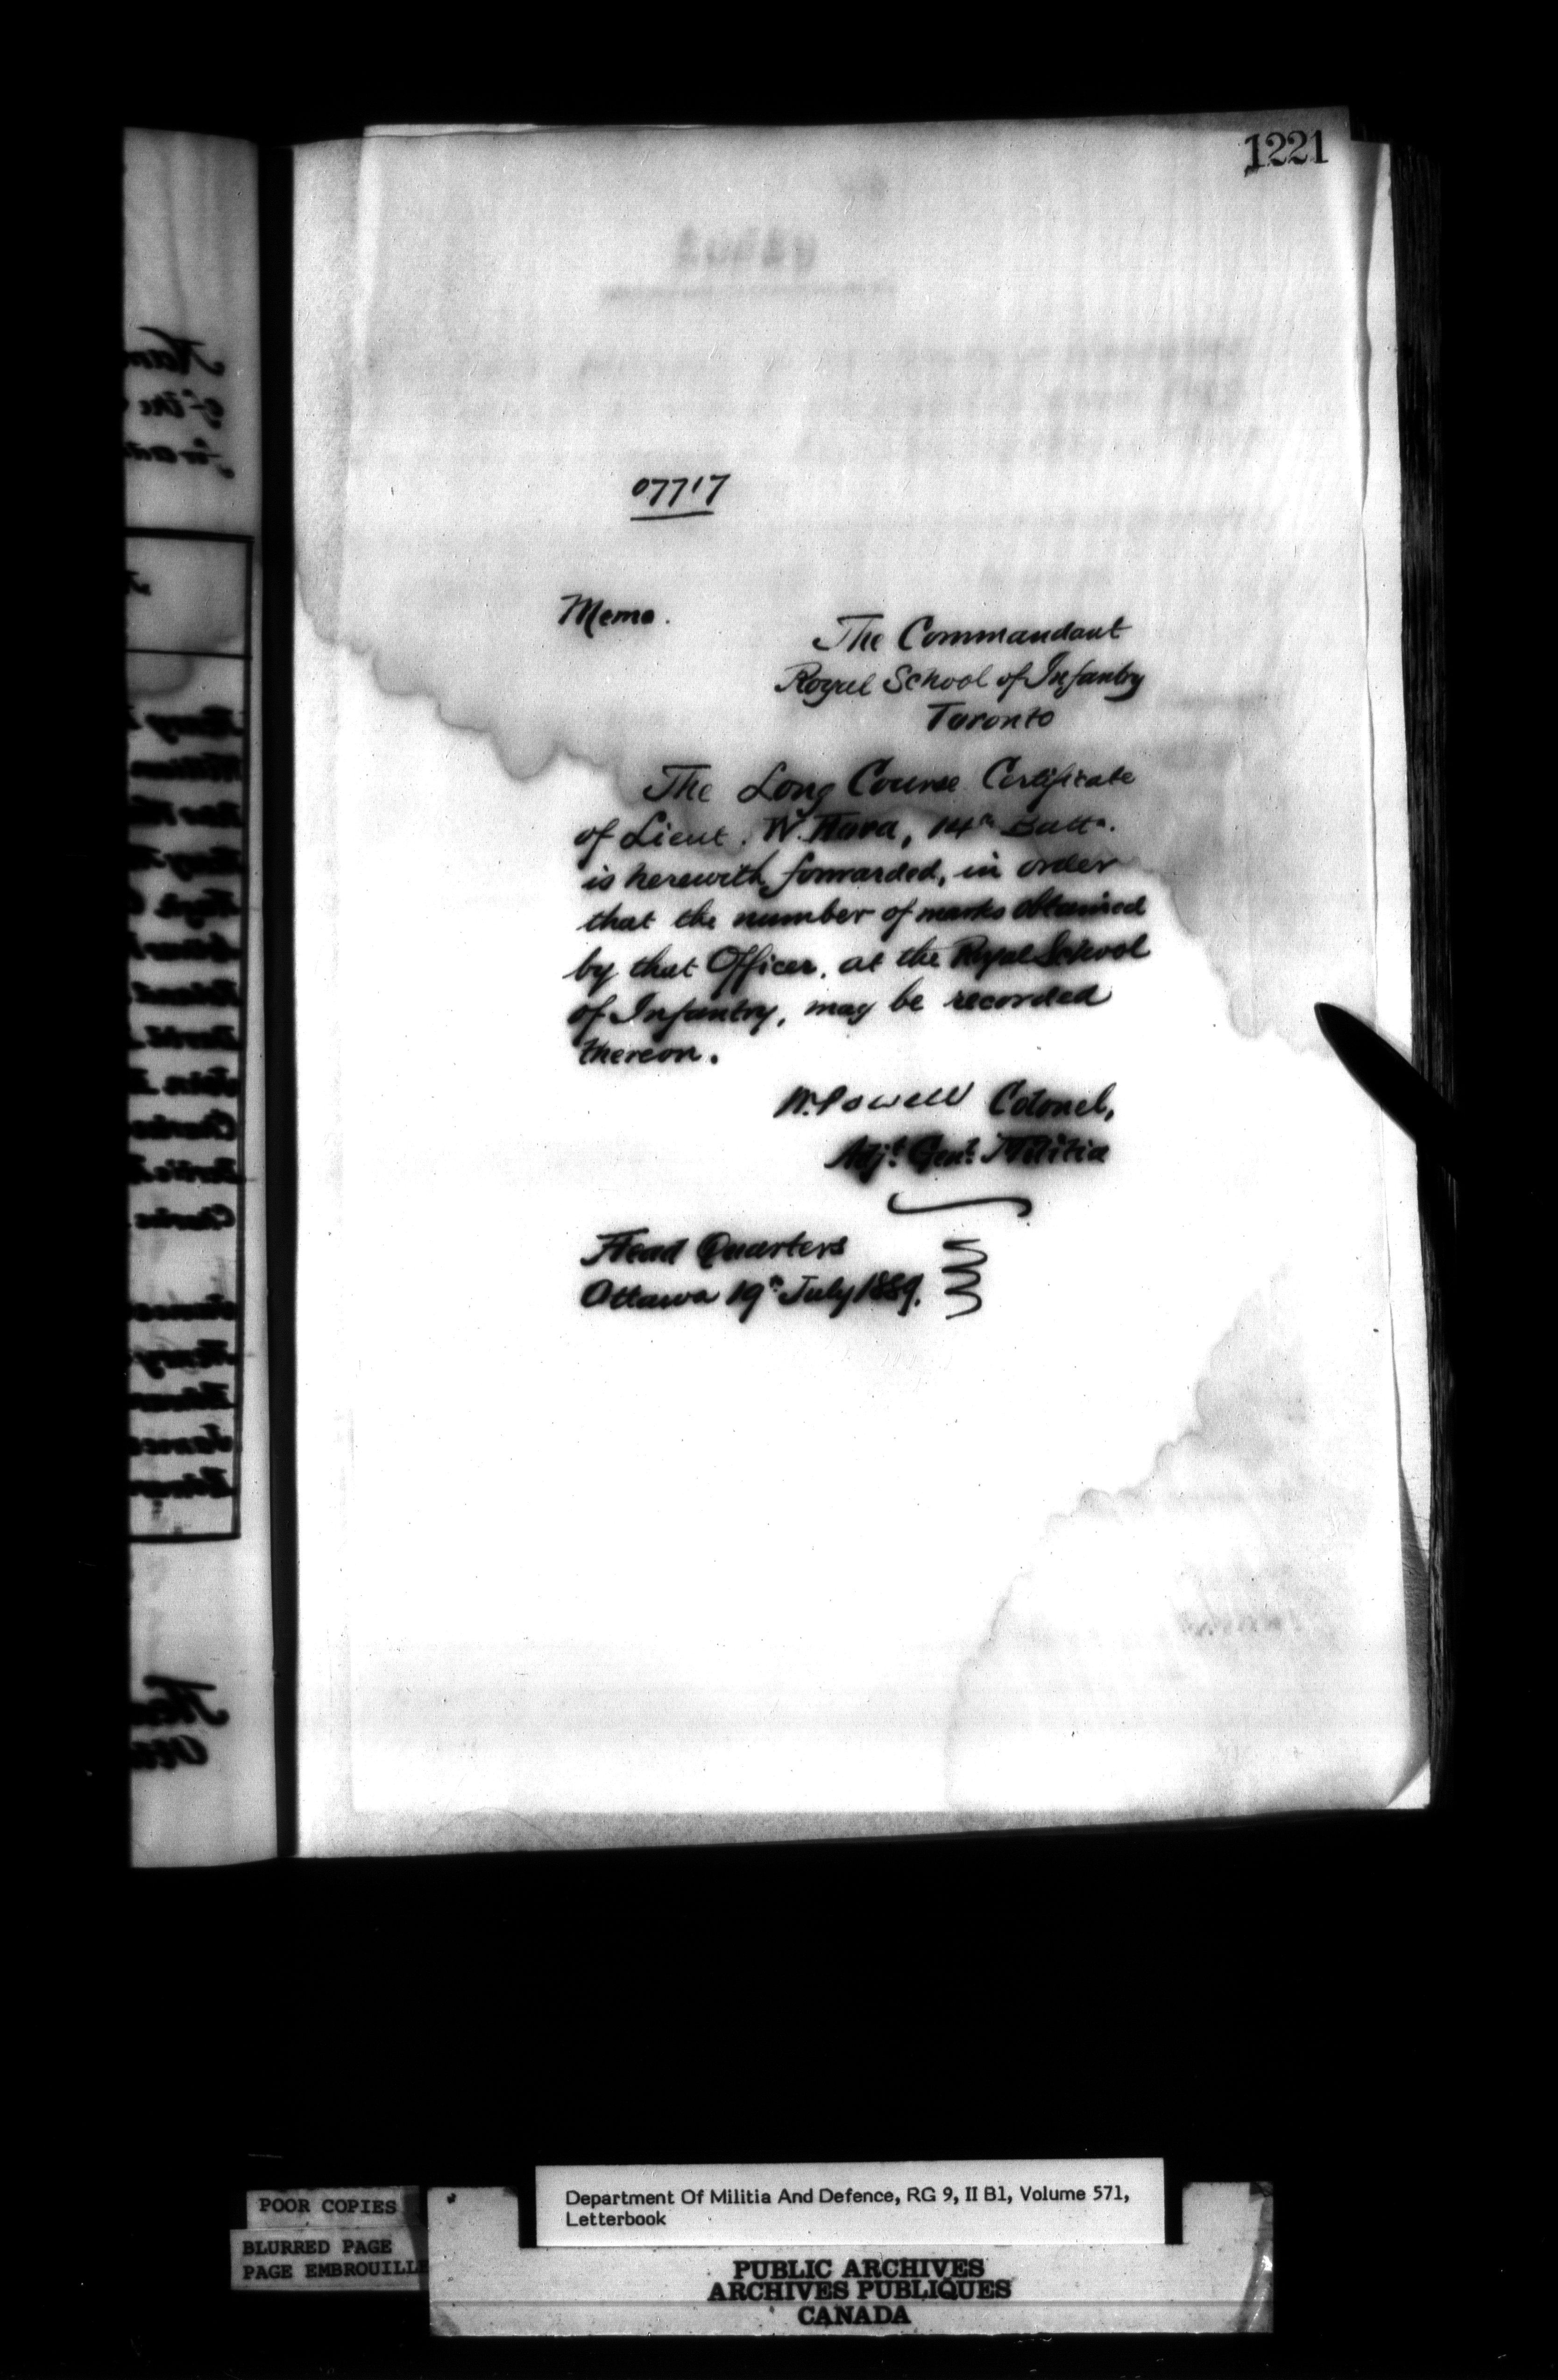 1221
07717
Memo.
The Commandant
Royal School of Infantry
Toronto
The Long Course Certificate
of Lieut. W. Hora, 14th Battn.
is herewith forwarded, in order
that the number of marks obtained
by that Officer, at the Royal School
of Infantry, may be recorded
thereon.
W. Powell Colonel,
Adjt. Genl. Militia
Head Quarters
Ottawa 19th July 1889.
POOR COPIES
BLURRED PAGE
PAGE EMBROUILLE
Department Of Militia And Defence, RG 9, II B1, Volume 571,
Letterbook
PUBLIC ARCHIVES
ARCHIVES PUBLIQUES
CANADA